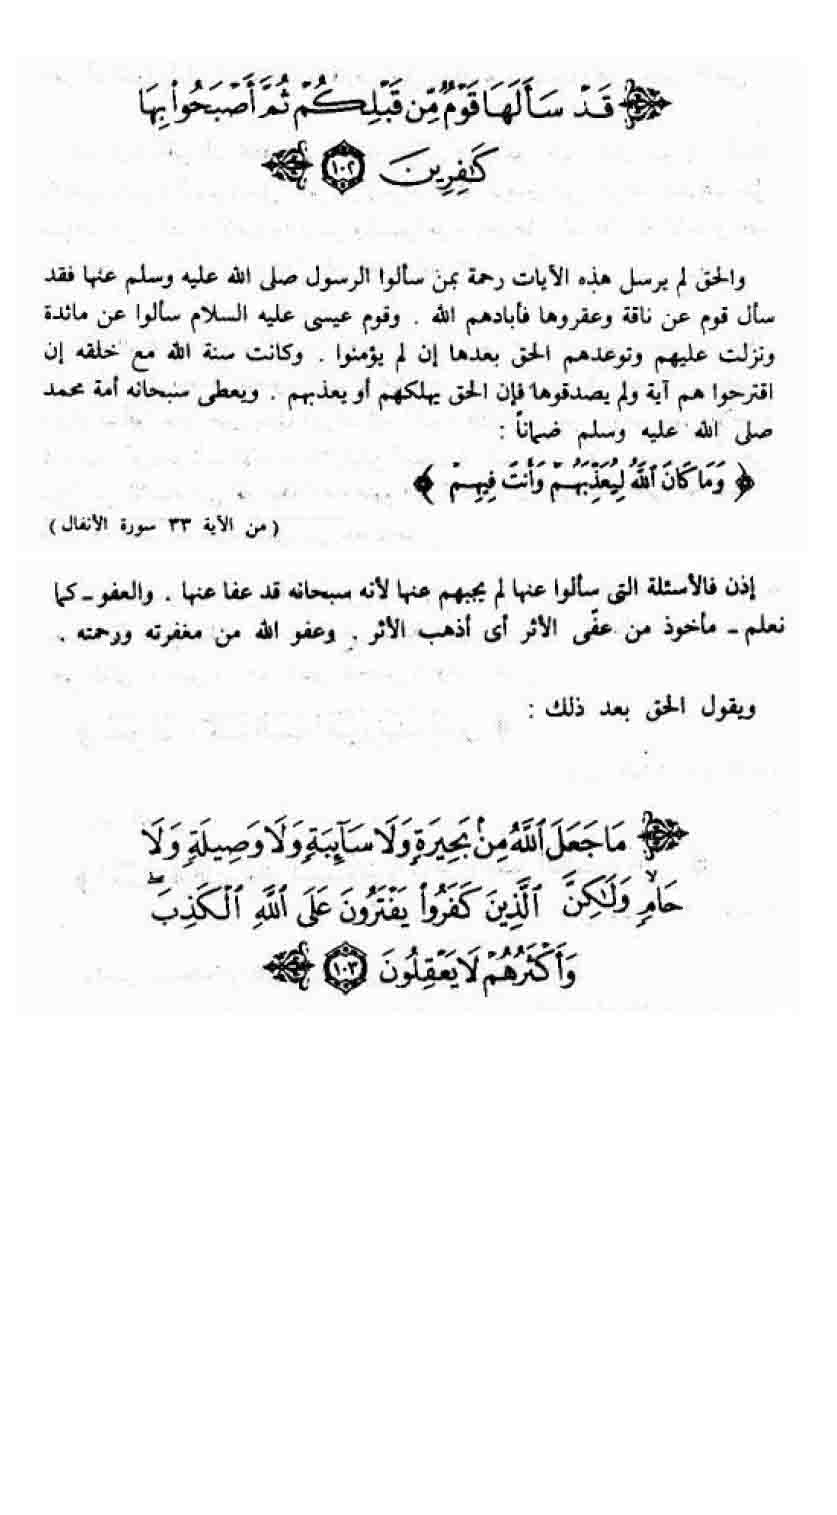 قَدْ سَأَلَهَا قَوْمٌ مِّن قَبْلِكُمْ ثُمَّ أَصْبَحُوا۟ بِهَا
كَـٰفِرِينَ ١٠٢
والحق لم يرسل هذه الآيات رحمة بمن سألوا الرسول صلى الله عليه وسلم عنها فقد
سأل قوم عن ناقة وعقروها فأبادهم الله . وقوم عيسى عليه السلام سألوا عن مائدة
ونزلت عليهم وتوعدهم الحق بعدها إن لم يؤمنوا . وكانت سنة الله مع خلقه إن
اقترحوا هم آية ولم يصدقوها فإن الحق يهلكهم أو يعذبهم . ويعطى سبحانه أمة محمد
صلى الله عليه وسلم ضماناً :
﴿ وَمَا كَانَ ٱللَّهُ لِيُعَذِّبَهُمْ وَأَنتَ فِيهِمْ ﴾
( من الآية ٣٣ سورة الأنفال )
إذن فالأسئلة التى سألوا عنها لم يجبهم عنها لأنه سبحانه قد عفا عنها . والعفو ـ كما
نعلم ـ مأخوذ من عفّى الأثر أى أذهب الأثر . وعفو الله من مغفرته ورحمته .
ويقول الحق بعد ذلك :
مَا جَعَلَ ٱللَّهُ مِنۢ بَحِيرَةٍ وَلَا سَآئِبَةٍ وَلَا وَصِيلَةٍ وَلَا
حَامٍ ۙ وَلَـٰكِنَّ ٱلَّذِينَ كَفَرُوا۟ يَفْتَرُونَ عَلَى ٱللَّهِ ٱلْكَذِبَ ۖ
وَأَكْثَرُهُمْ لَا يَعْقِلُونَ ١٠٣